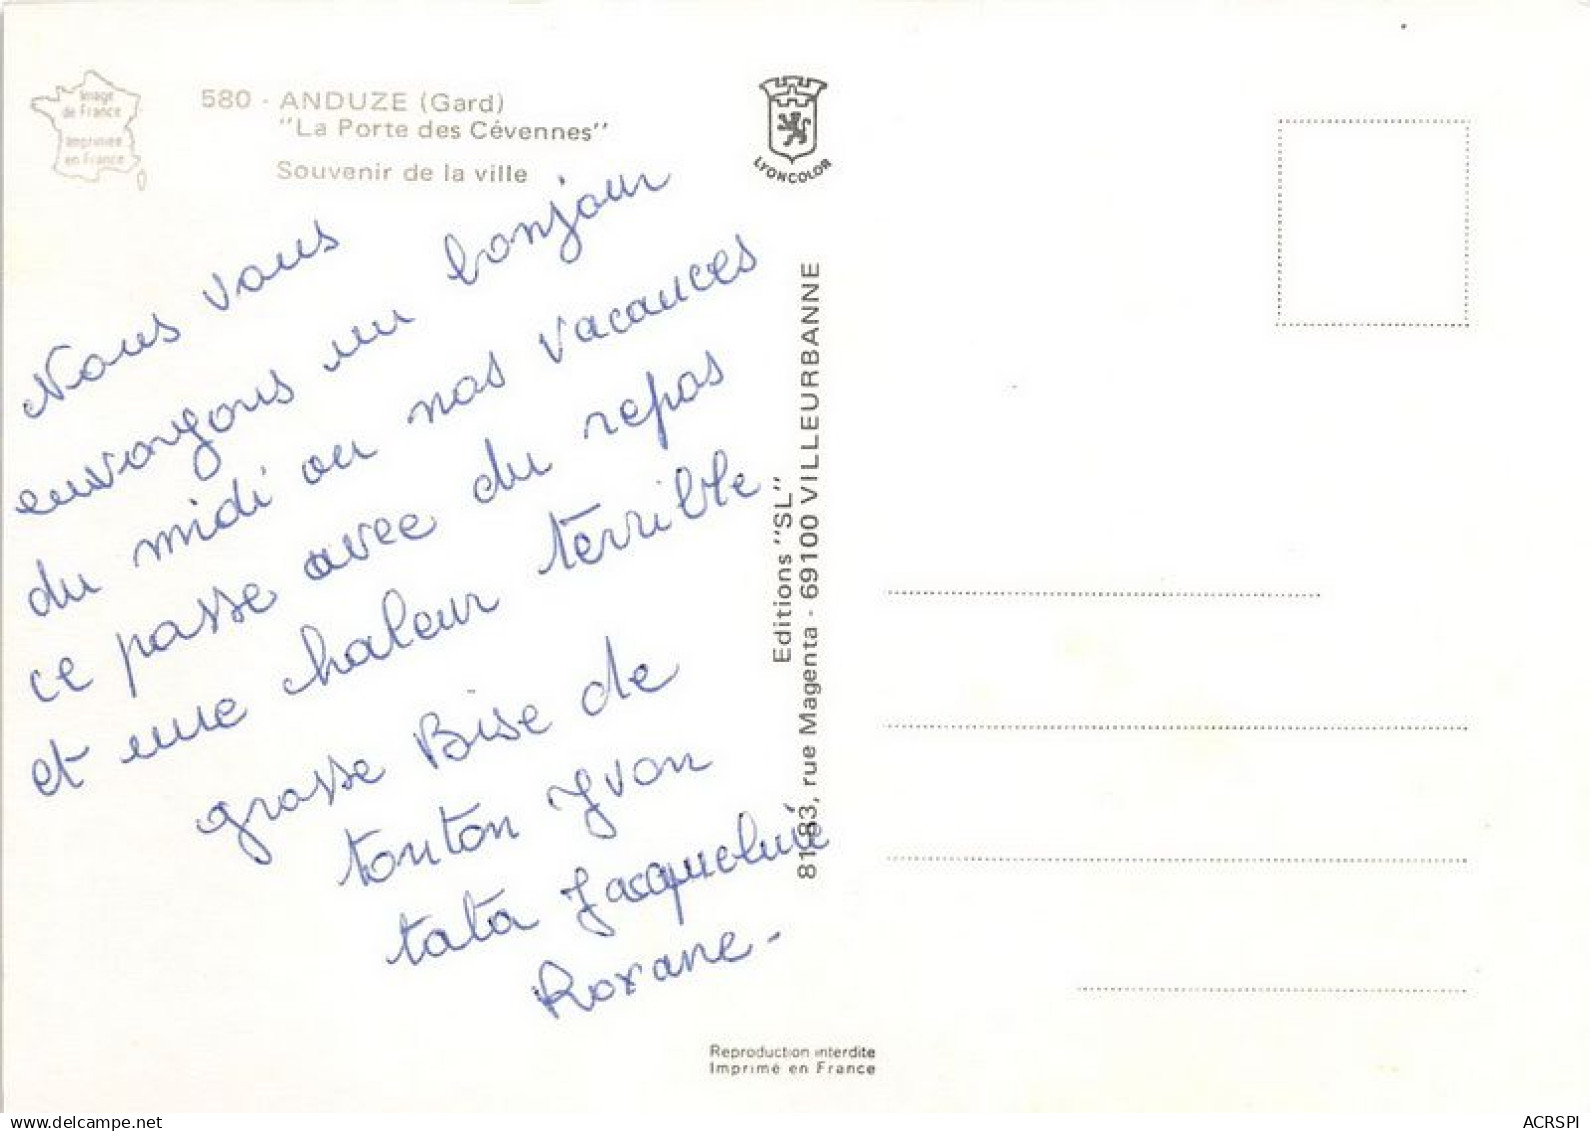 Image
de France
Imprimée
en France
580 - ANDUZE (Gard)
"La Porte des Cévennes"
Souvenir de la ville
LYONCOLOR
Nous vous
envoyons un bonjour
du midi ou nos vacances
ce passe avec du repos
et une chaleur terrible
grosse Bise de
tonton Yvon
tata Jacqueline
Roxane -
Editions "SL"
81-83, rue Magenta - 69100 VILLEURBANNE
Reproduction interdite
Imprimé en France
delcampe.net
ACRSPI